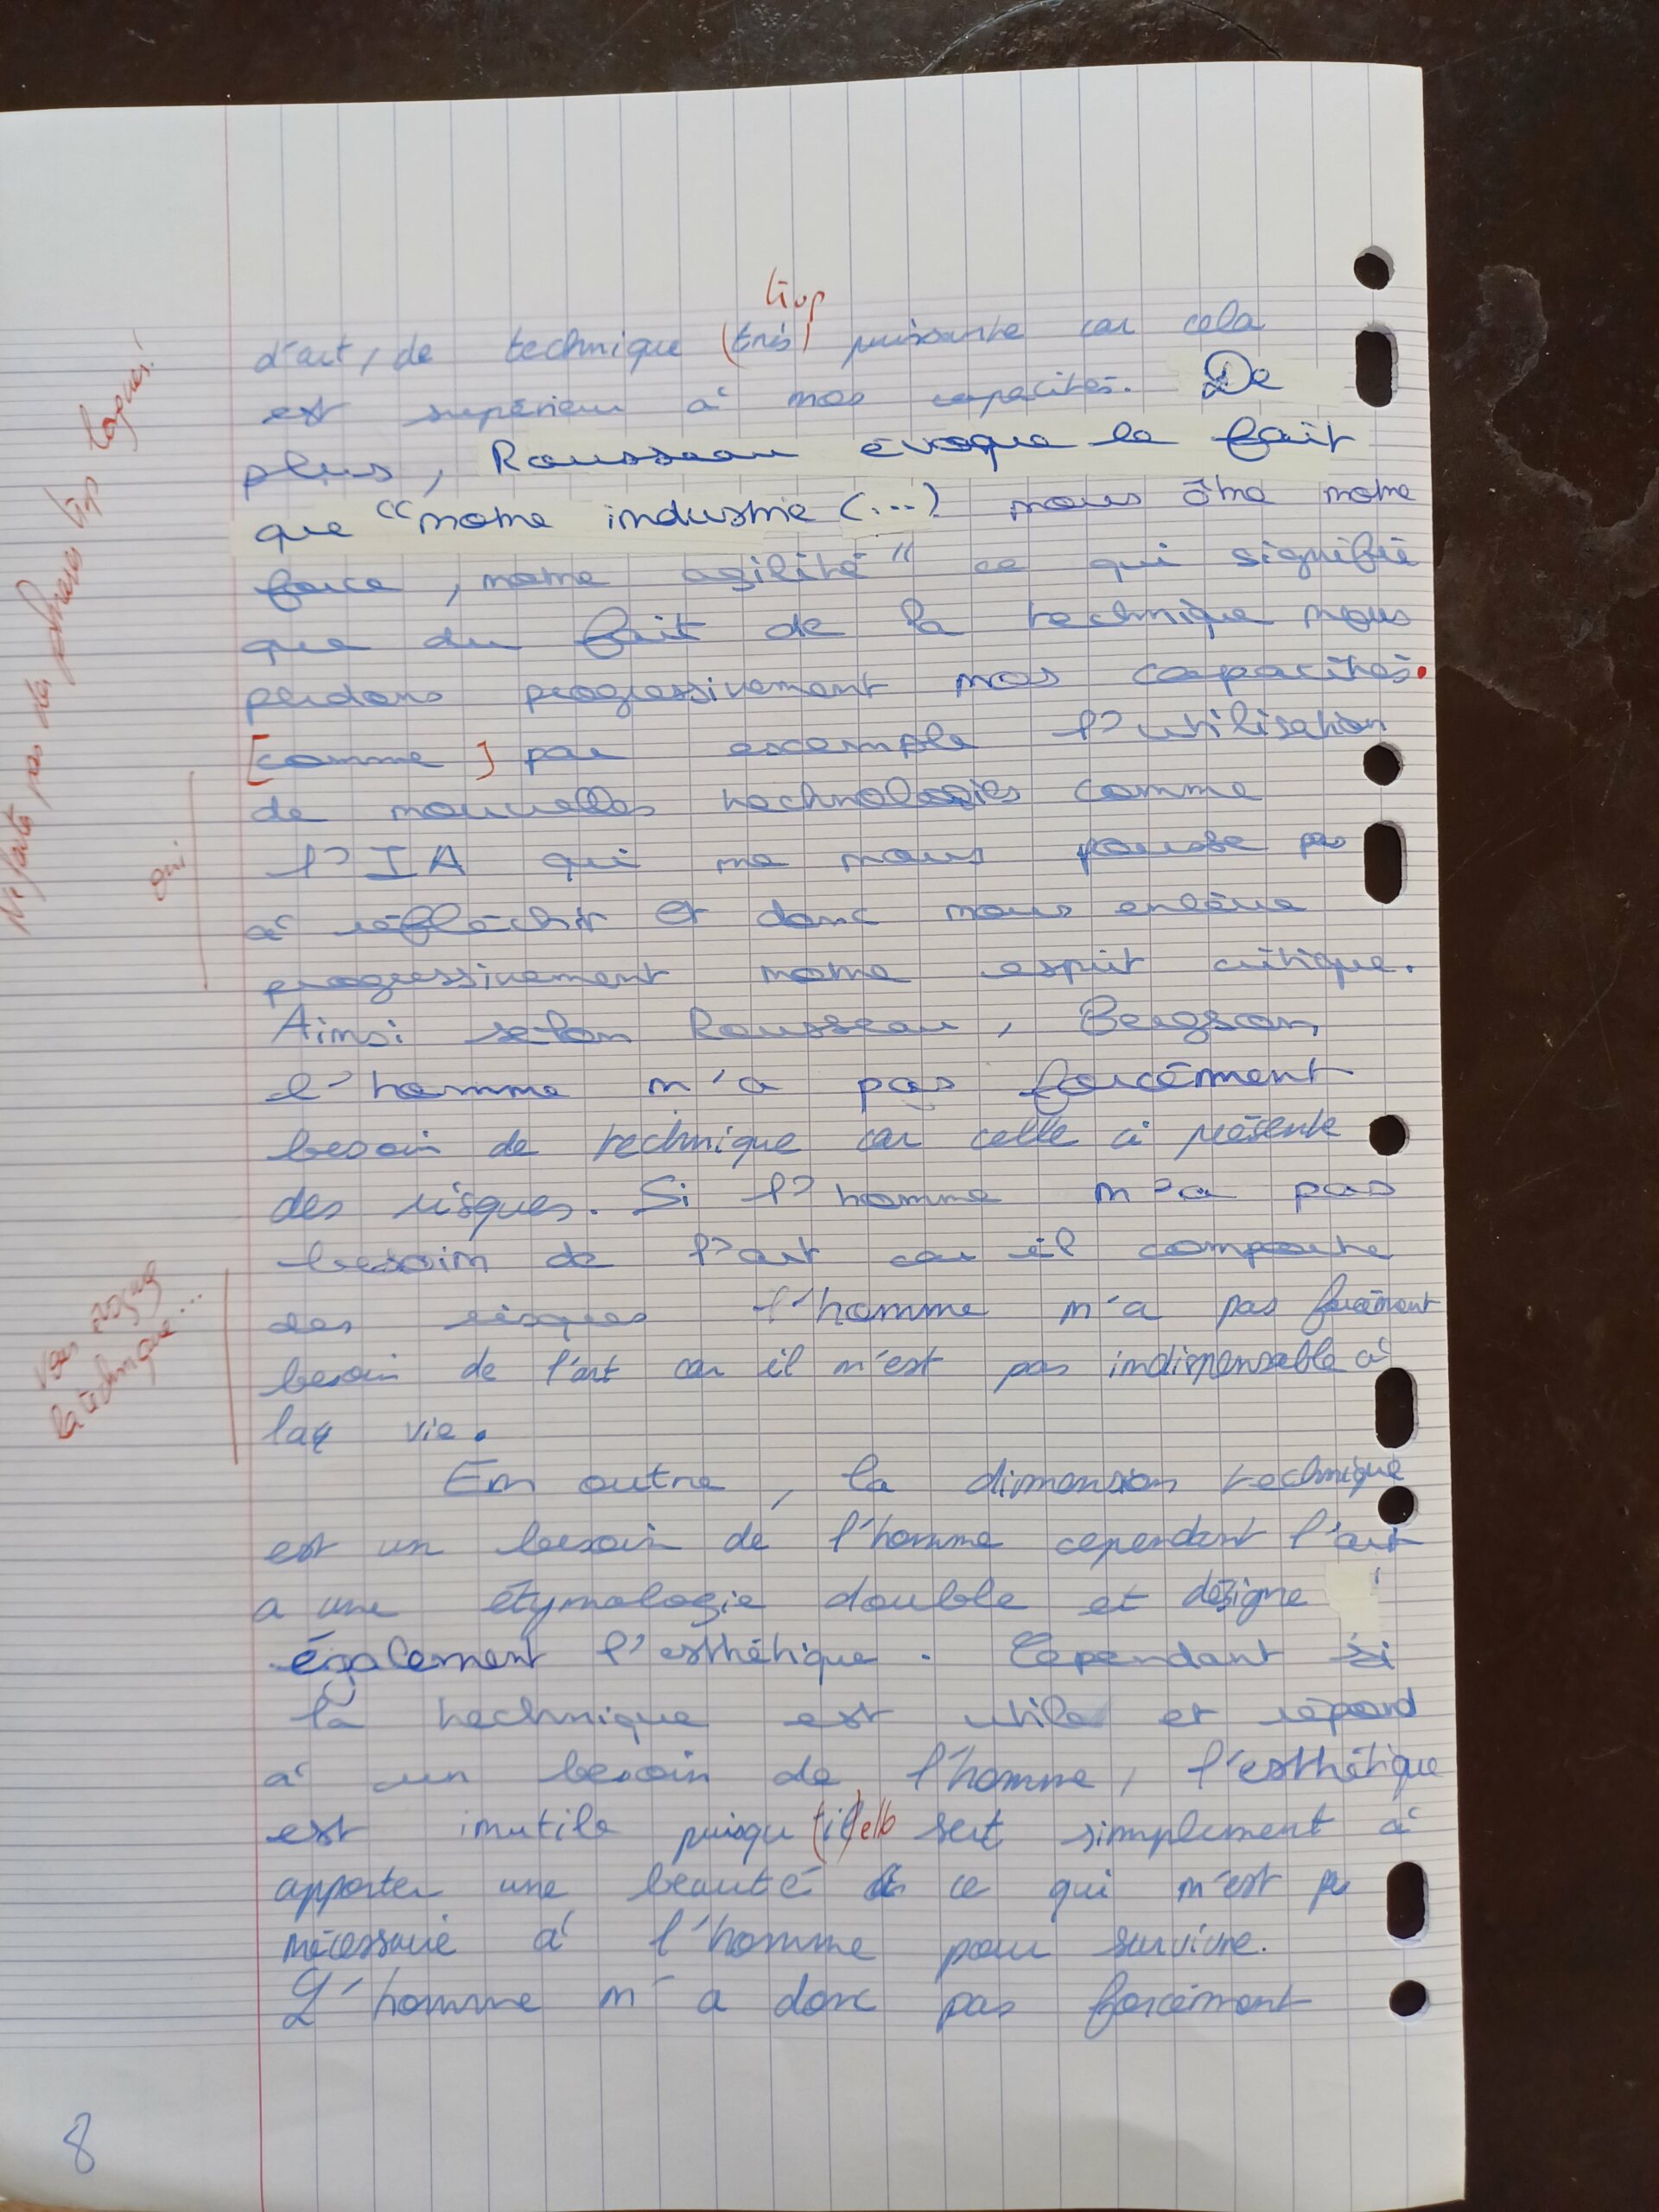 trop
d'art, de technique (très) puissante car cela
est supérieur à nos capacités. De
plus, Rousseau évoque le fait
que "notre industrie (...) nous ôte notre
force, notre agilité" ce qui signifie
que du fait de la technique nous
perdons progressivement nos capacités.
[comme] par exemple l'utilisation
de nouvelles technologies comme
oui
l'IA qui ne nous pousse pas
à réfléchir et donc nous enlève
progressivement notre esprit critique.
Ainsi selon Rousseau, Bergson,
l'homme n'a pas forcément
besoin de technique car celle ci présente
des risques. Si l'homme n'a pas
besoin de l'art car il comporte
des risques l'homme n'a pas forcément
besoin de l'art car il n'est pas indispensable à
la vie.
Ne faites pas de phrases trop longues!
la technique...
En outre, la dimension technique
est un besoin de l'homme cependant l'art
a une étymologie double et désigne
également l'esthétique. Cependant si
la technique est utile et répond
à un besoin de l'homme, l'esthétique
est inutile puisqu'(il) elle sert simplement à
apporter une beauté ce qui n'est pas
nécessaire à l'homme pour survivre.
L'homme n'a donc pas forcément
8